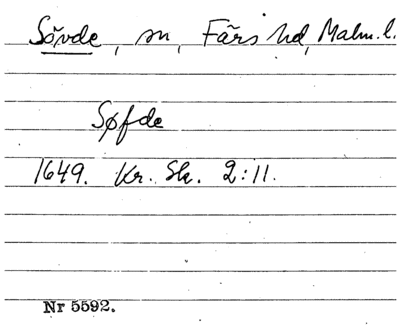 Sövde, sn, Färs hd, Malm. l.
Søfde
1649. Kr. Sk. 2:11.
Nr 5592.